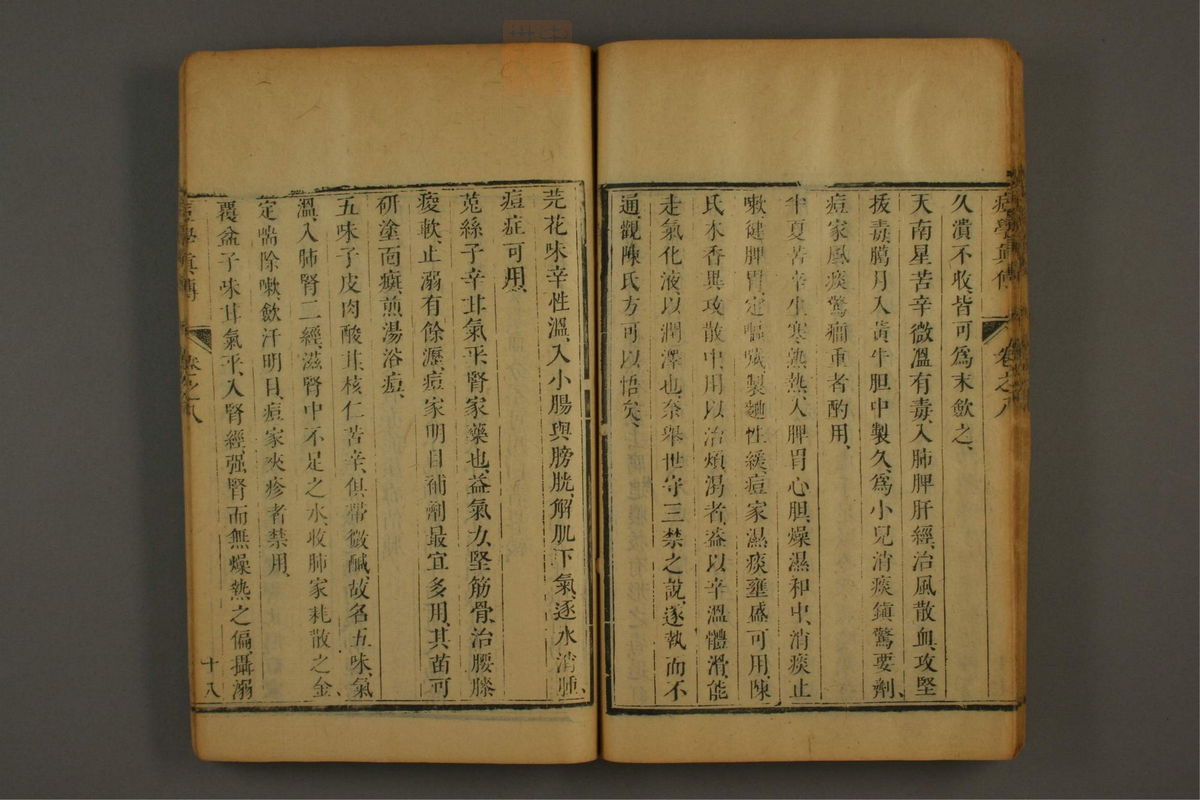 痘學真傳 卷之八
久潰不收、皆可爲末歛之、
天南星苦辛微溫有毒、入肺脾肝經、治風散血、攻堅
拔毒、臈月入黃牛胆中製久、爲小兒消痰鎮驚要劑、
痘家風痰驚癎重者酌用、
半夏苦辛、生寒熟熱、入脾胃心胆、燥濕和中、消痰止
嗽、健脾胃、定嘔噦、製麯性緩、痘家濕痰壅盛可用、陳
氏木香異攻散中、用以治煩渴者、葢以辛溫體滑、能
走氣化液、以潤澤也、奈舉世守三禁之說、遂執而不
通、觀陳氏方可以悟矣、
芫花味辛性溫、入小腸與膀胱、解肌下氣、逐水消腫、
痘症可用、
莵絲子辛甘氣平、腎家藥也、益氣力、堅筋骨、治腰膝
痠軟、止溺有餘瀝、痘家明目補劑最宜多用、其苗可
研塗面癍、煎湯浴痘、
五味子皮肉酸甘、核仁苦辛、俱帶微鹹、故名五味、氣
溫、入肺腎二經、滋腎中不足之水、收肺家耗散之金、
定喘除嗽、歛汗明目、痘家夾疹者禁用、
覆盆子味甘氣平、入腎經、强腎而無燥熱之偏、攝溺
痘學真傳 卷之八 十八